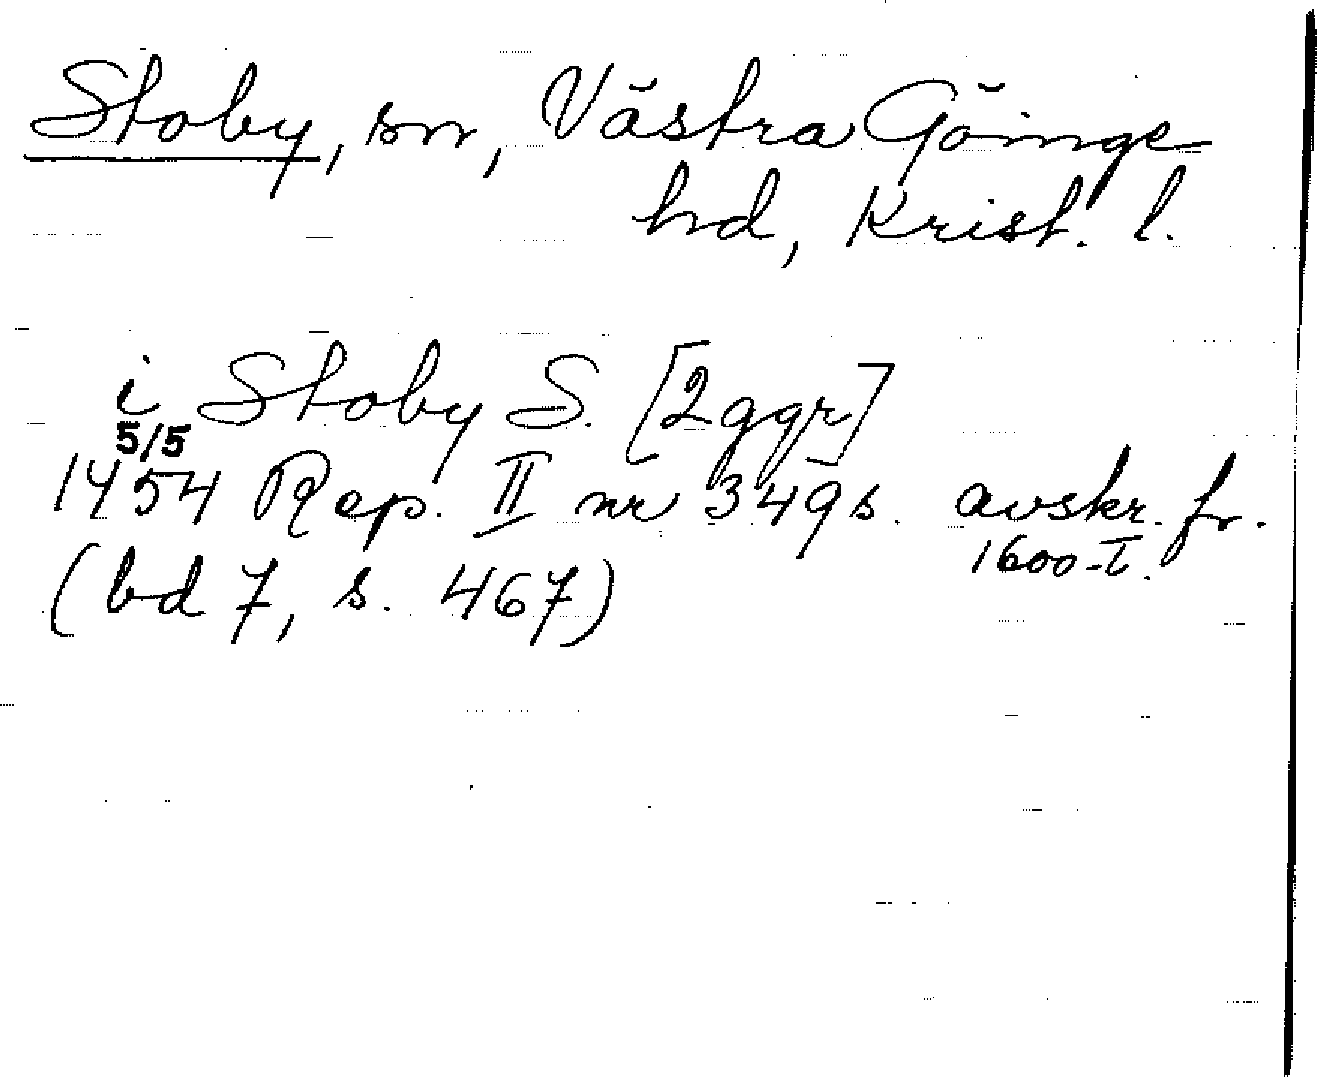 Stoby, sn, Västra Göinge
hd, Krist. l.
i Stoby S. [2 ggr]
5/5
1454 Rep. II nr 349 s. avskr. fr.
1600-t.
(bd 7, s. 467)